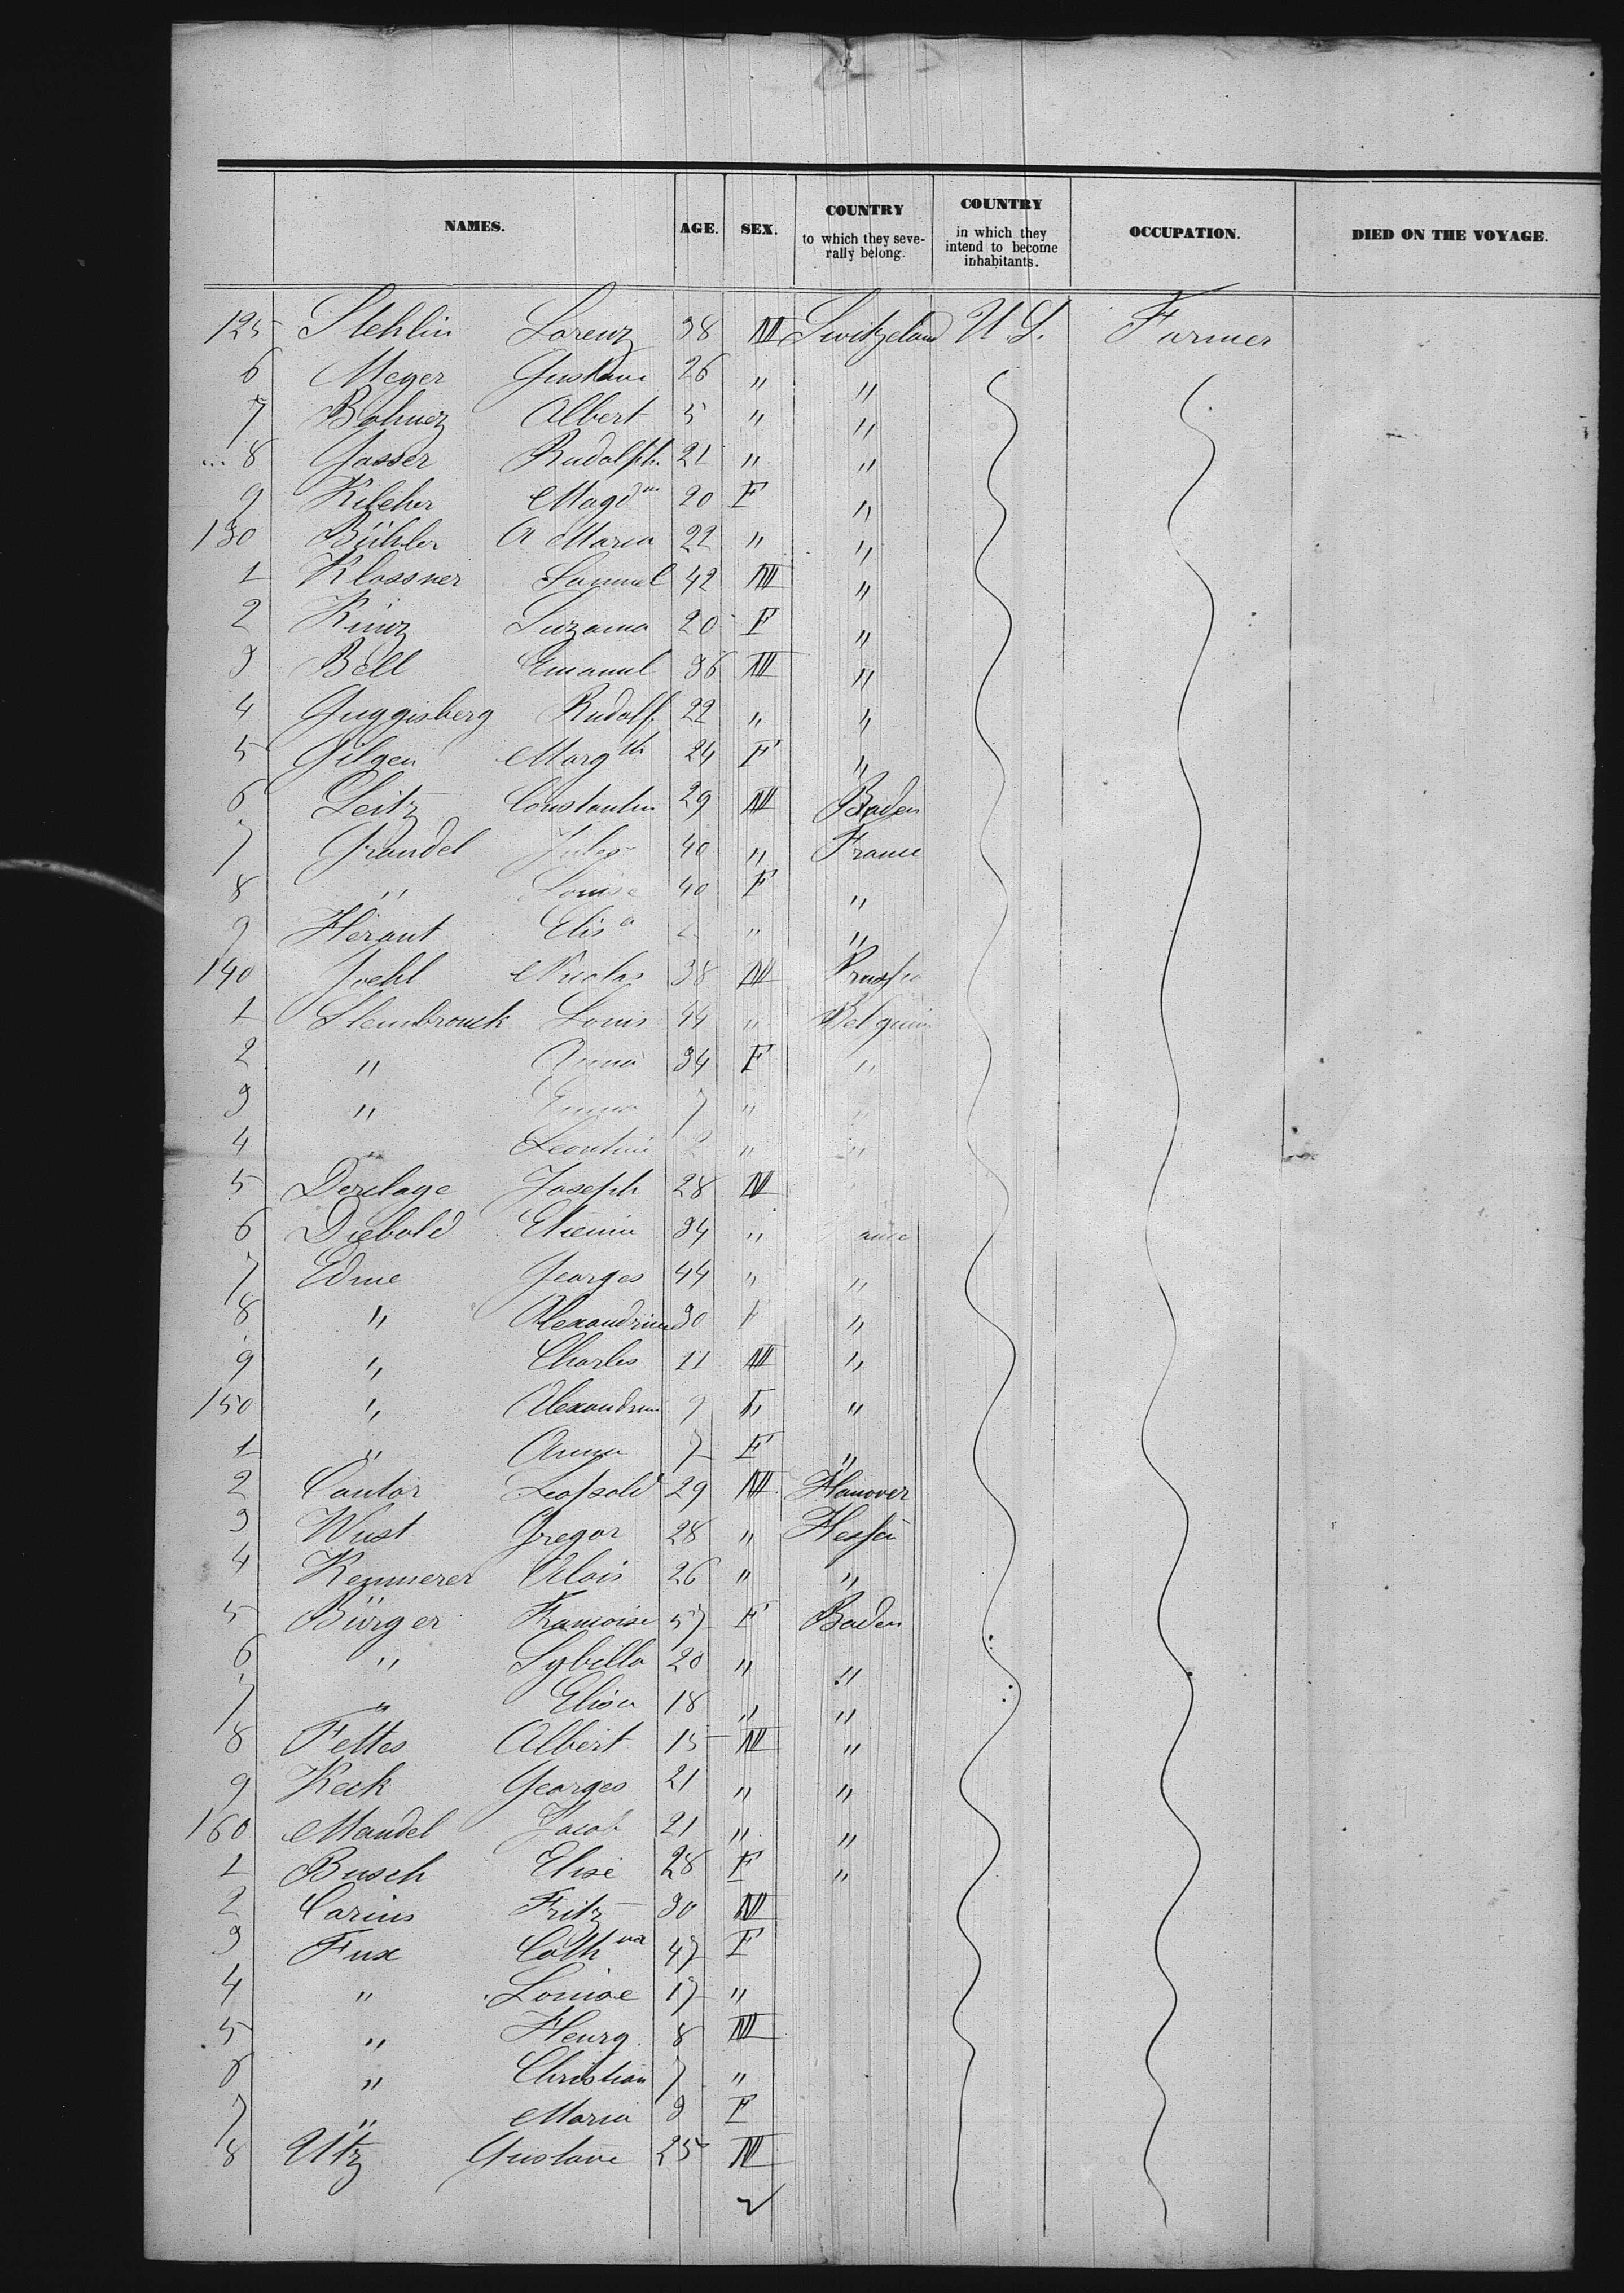 NAMES. AGE. SEX. COUNTRY to which they severally belong. COUNTRY in which they intend to become inhabitants. OCCUPATION. DIED ON THE VOYAGE.
125 Stehlin Lorenz 38 M Switzeland U.S. Farmer
6 Meyer Gustave 26 " "
7 Bohnez Albert 5 " "
8 Gasser Rudolph 21 " "
9 Kilcher Magdna 20 F "
130 Bühler A Maria 22 " "
1 Klossner Samuel 42 M "
2 Künz Suzanna 20 F "
3 Bell Emanuel 36 M "
4 Guggisberg Rudolf 22 " "
5 Gilgen Margth 24 F "
6 Seitz Constantin 29 M Baden
7 Grandel Jules 40 " France
8 " Louise 40 F "
9 Herant Elisa " "
140 Joehl Nicolas 38 M Prussia
1 Slembrouck Louis 44 " Belgium
2 " Anna 34 F "
3 " Emma 7 " "
4 " Leontine 2 " "
5 Derclaye Joseph 28 M
6 Diebold Etienne 34 " ance
7 Edme Georges 44 " "
8 " Alexandrine 30 F "
9 " Charles 11 M "
150 " Alexandrine 9 F "
1 " Anna 7 F "
2 Cantor Leopold 29 M Hanover
3 Wust Gregor 28 " Hessen
4 Kemmerer Alois 26 " "
5 Bürger Francoise 57 F Baden
6 " Sybilla 20 " "
7 " Elisa 18 " "
8 Fettes Albert 15 M "
9 Keck Georges 21 " "
160 Mandel Jacob 21 " "
1 Busch Elise 28 F "
2 Carius Fritz 30 M
3 Fux Cathna 47 F
4 " Louise 17 "
5 " Henry 8 M
6 " Christian 7 "
7 " Maria 3 F
8 Utz Gustave 25 M